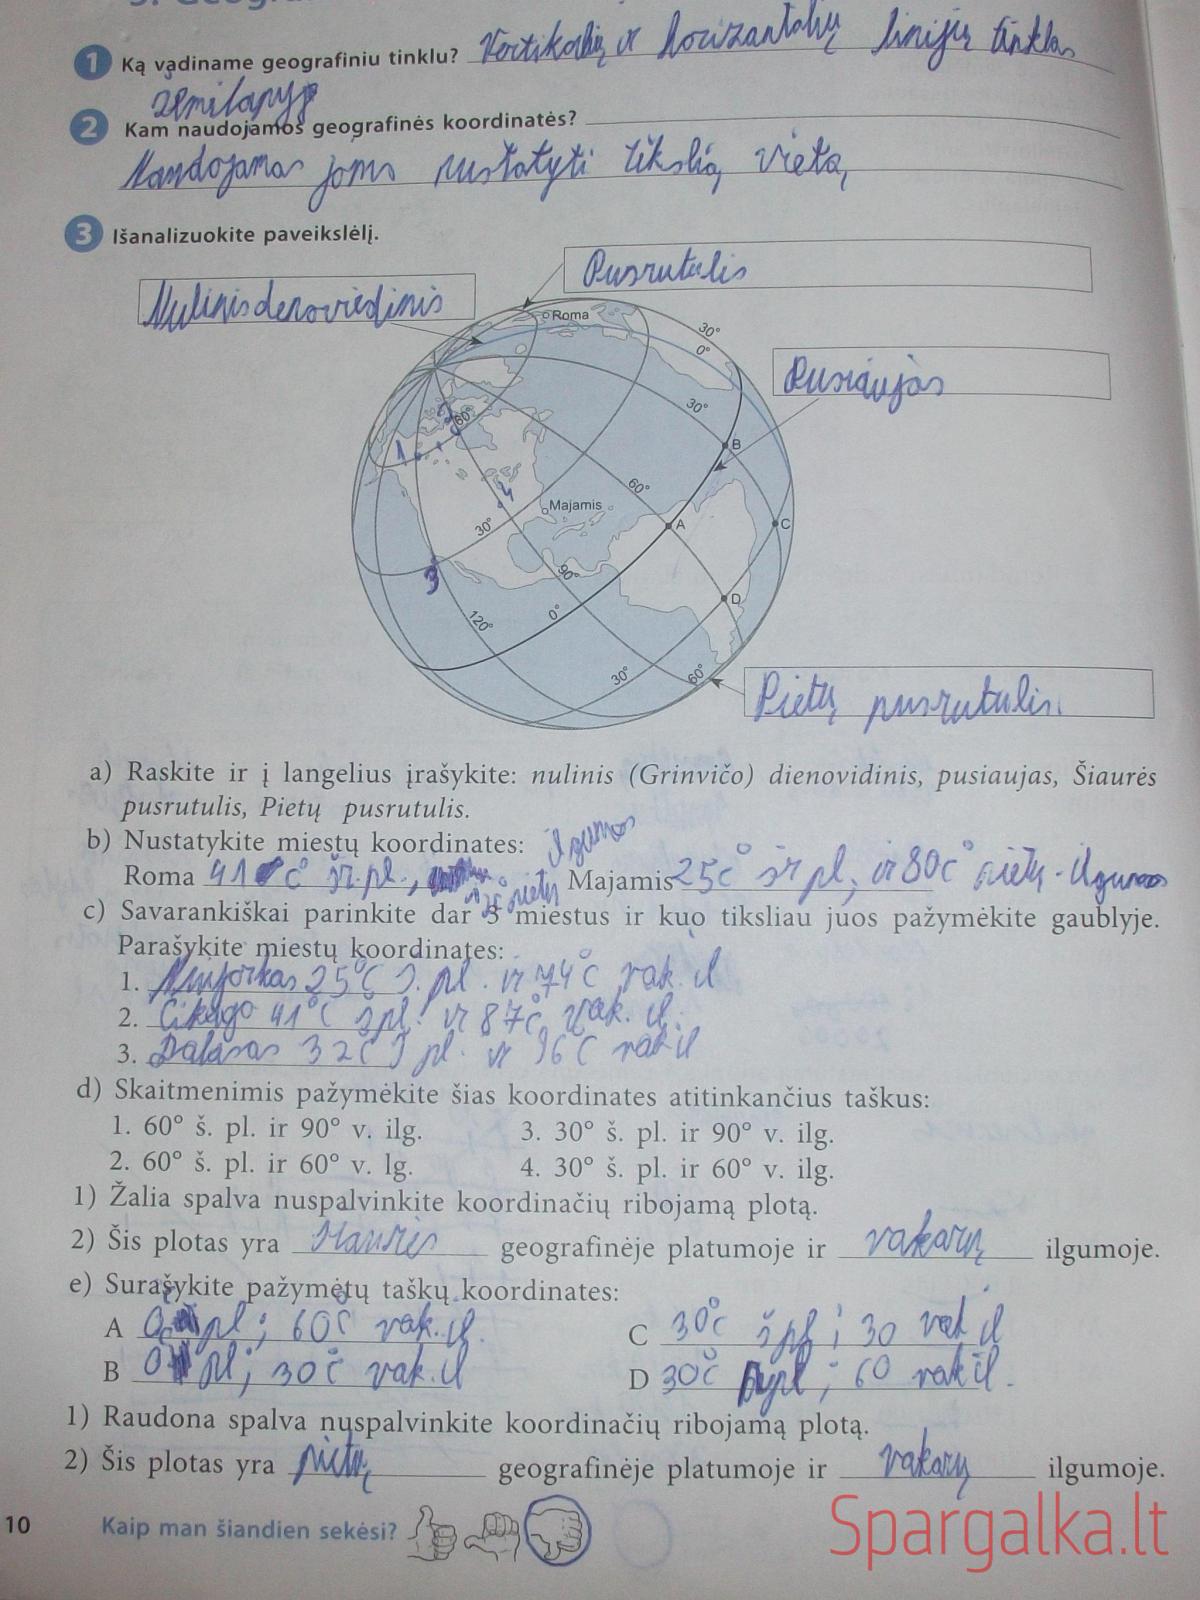 1 Ką vadiname geografiniu tinklu? Vertikalių ir horizantalių linijių tinklas
žemėlapyje
2 Kam naudojamos geografinės koordinatės?
Naudojamas joms nustatyti tikslią vietą
3 Išanalizuokite paveikslėlį.
Pusrutulis
Nulinis denoviedinis
Roma
30°
0°
Pusiaujas
30°
60°
B
1
2
60°
4
Majamis
30°
A
C
3
90°
D
120°
0°
30°
60°
Pietų pusrutulis.
a) Raskite ir į langelius įrašykite: nulinis (Grinvičo) dienovidinis, pusiaujas, Šiaurės
pusrutulis, Pietų pusrutulis.
b) Nustatykite miestų koordinates: ilgumos
Roma 41 C° šr. pl., pietų Majamis 25C° šr pl; ir 80C° pietų ilgumos
c) Savarankiškai parinkite dar 3 miestus ir kuo tiksliau juos pažymėkite gaublyje.
Parašykite miestų koordinates:
1. Niujorkas 25°C š. pl. ir 74°C vak. il
2. Čikago 41°C š pl. ir 87C° vak. il.
3. Dalasas 32C š pl. ir 96°C vak il
d) Skaitmenimis pažymėkite šias koordinates atitinkančius taškus:
1. 60° š. pl. ir 90° v. ilg. 3. 30° š. pl. ir 90° v. ilg.
2. 60° š. pl. ir 60° v. lg. 4. 30° š. pl. ir 60° v. ilg.
1) Žalia spalva nuspalvinkite koordinačių ribojamą plotą.
2) Šis plotas yra šiaurės geografinėje platumoje ir vakarų ilgumoje.
e) Surašykite pažymėtų taškų koordinates:
A 0 pl; 60C° vak. il. C 30C° š pl; 30 vak il
B 0 pl; 30C° vak. il D 30C° pl; 60 vak il.
1) Raudona spalva nuspalvinkite koordinačių ribojamą plotą.
2) Šis plotas yra pietų geografinėje platumoje ir vakarų ilgumoje.
10 Kaip man šiandien sekėsi?
Spargalka.lt